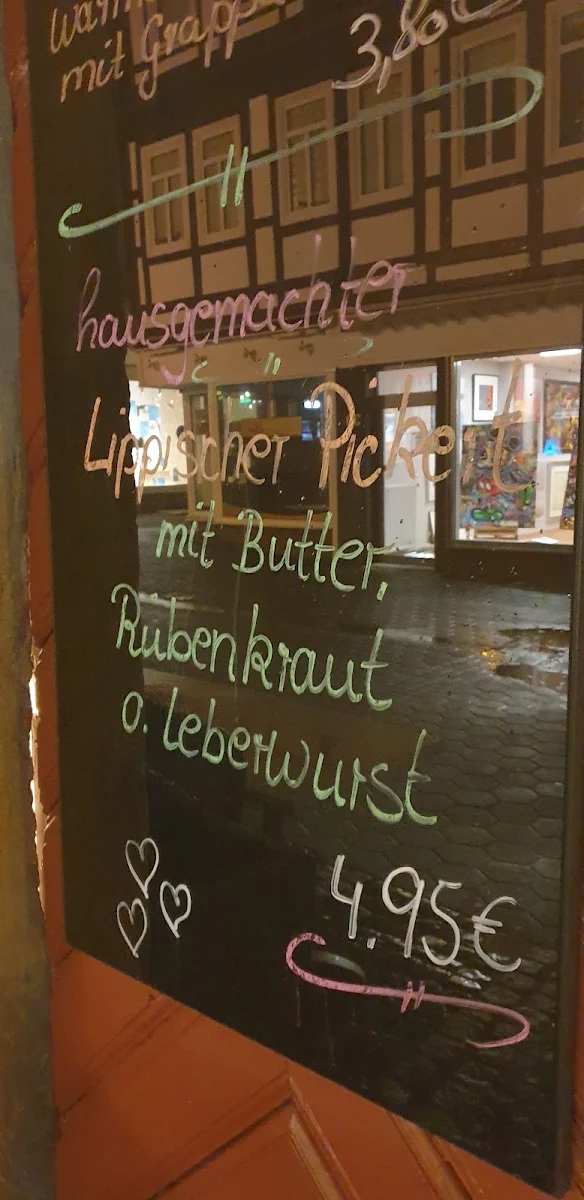 mit Grappa
3,80€
hausgemachter
Lippischer Pickert
mit Butter,
Rübenkraut
o. Leberwurst
4.95€